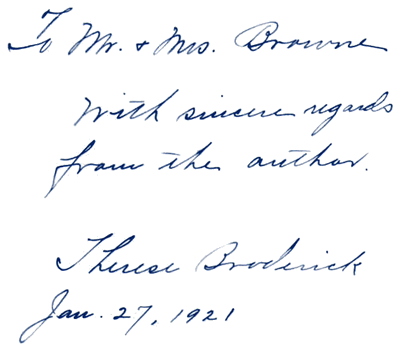 To Mr. & Mrs. Browne
With sincere regards
from the author.
Therese Broderick
Jan. 27, 1921